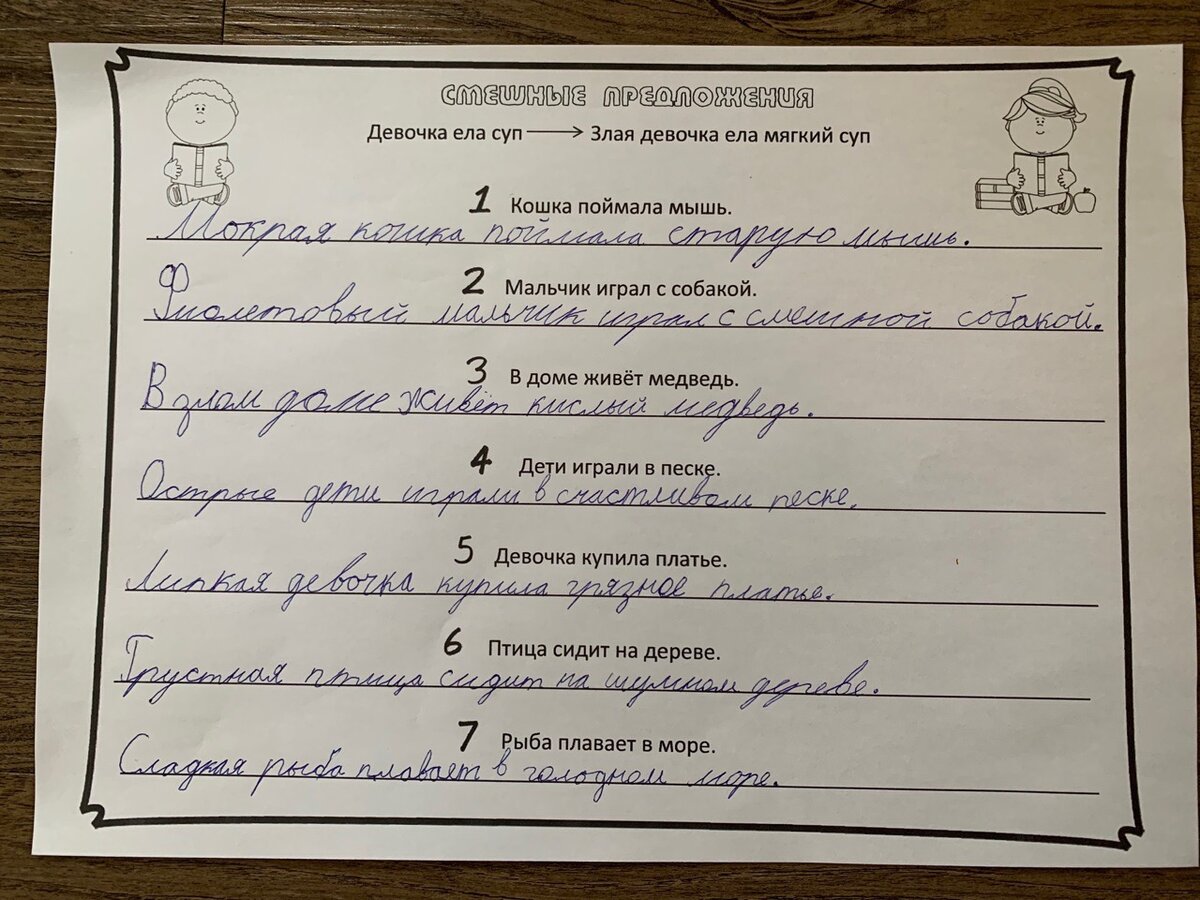 СМЕШНЫЕ ПРЕДЛОЖЕНИЯ
Девочка ела суп → Злая девочка ела мягкий суп
1 Кошка поймала мышь.
Мокрая кошка поймала старую мышь.
2 Мальчик играл с собакой.
Фиолетовый мальчик играл с смешной собакой.
3 В доме живёт медведь.
В злом доме живёт кислый медведь.
4 Дети играли в песке.
Острые дети играли в счастливом песке.
5 Девочка купила платье.
Липкая девочка купила грязное платье.
6 Птица сидит на дереве.
Грустная птица сидит на шумном дереве.
7 Рыба плавает в море.
Сладкая рыба плавает в голодном море.